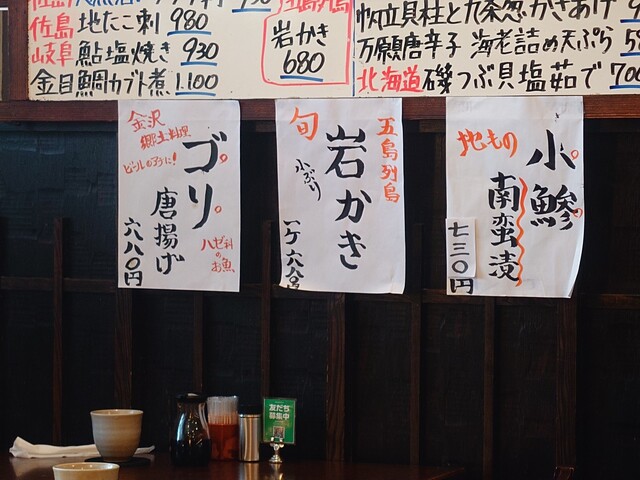 佐島 地たこ刺 980
岐阜 鮎塩焼き 930
金目鯛カブト煮 1.100
五島列島
岩かき
680
帆立貝柱と九条葱かきあげ
万願唐辛子 海老詰め天ぷら
北海道 磯つぶ貝塩茹で 700
金沢
郷土料理
ビールのアテに!
ゴリ
唐揚げ
ハゼ科
の
お魚
六八〇円
五島列島
旬
岩かき
小ぶり
一ケ 六八〇円
地もの
小鯵
南蛮漬
七三〇円
友だち
募集中